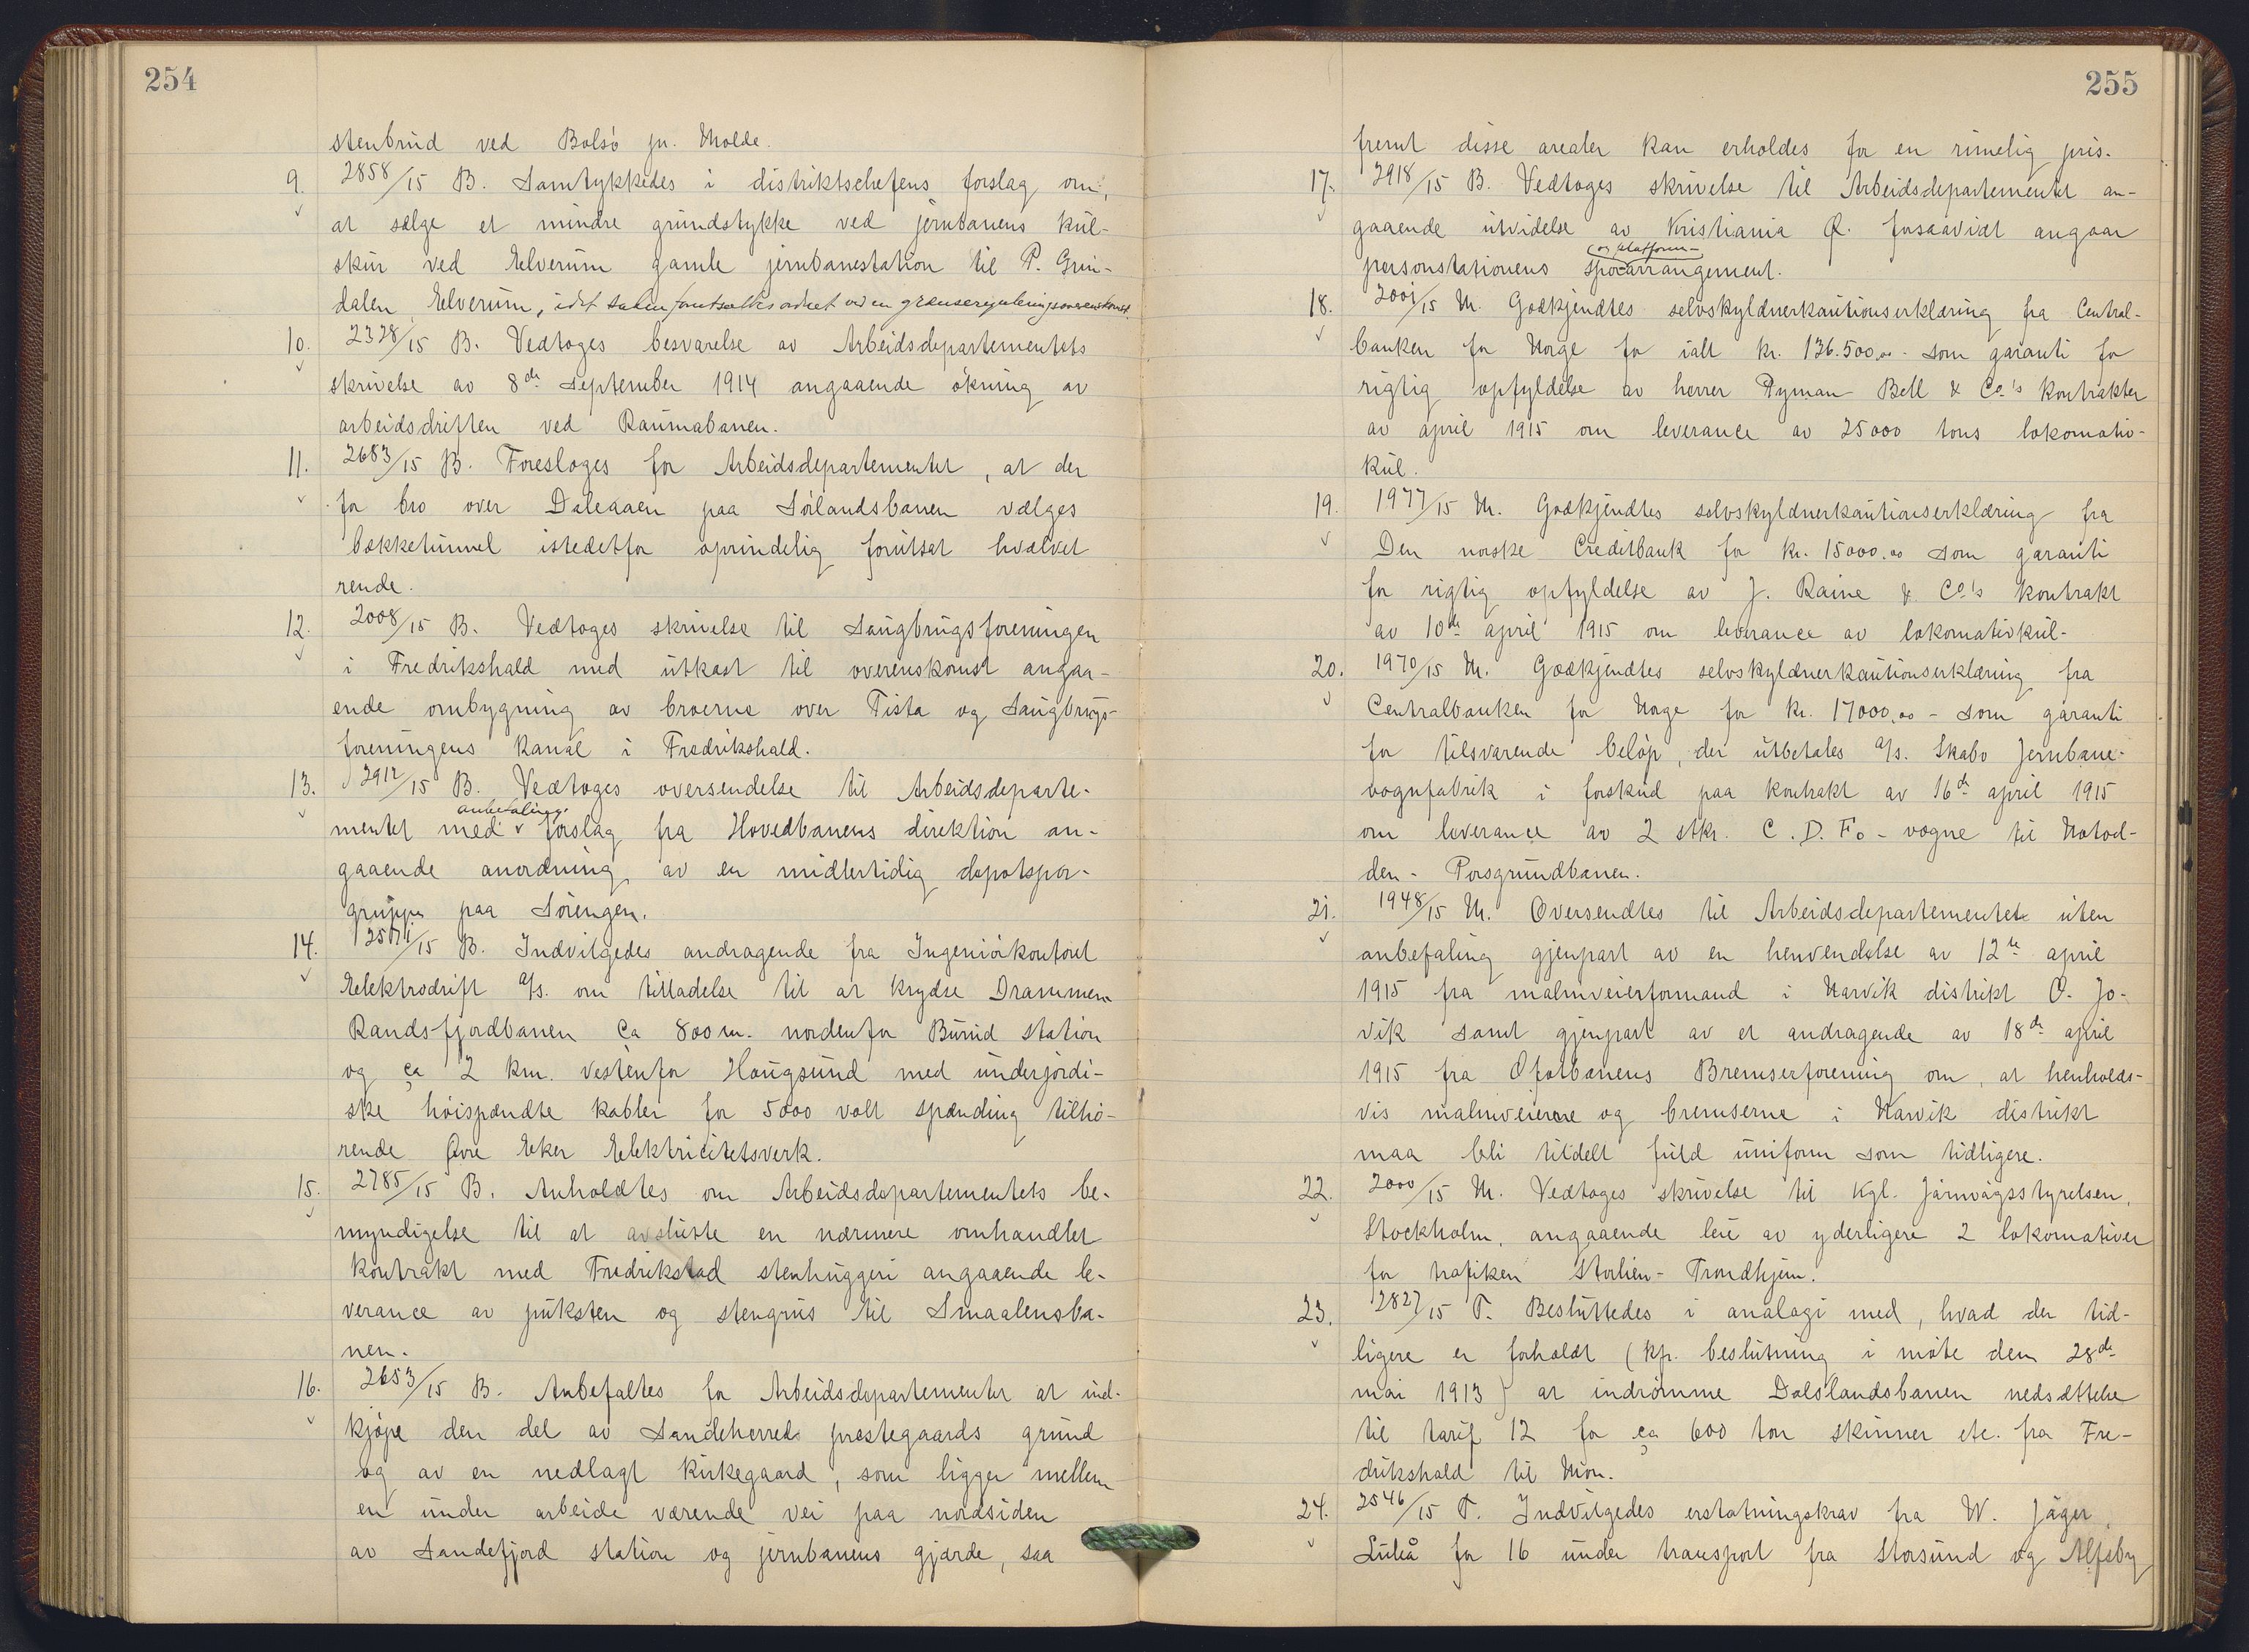 254
stenbrud ved Bolsö pr. Molde.
9. 2858/15 B. Samtykkedes i distriktschefens forslag om,
at sælge et mindre grundstykke ved jernbanens kul-
skur ved Elverum gamle jernbanestation til P. Grin-
dalen, Elverum, idet saken forutsættes ordnet ved en grænsereguleringsoverenskomst.
10. 2328/15 B. Vedtoges besvarelse av Arbeidsdepartementets
skrivelse av 8de september 1914 angaaende ökning av
arbeidsdriften ved Raumabanen.
11. 2683/15 B. Foresloges for Arbeidsdepartementet, at der
for bro over Daleaaen paa Sörlandsbanen vælges
bækketunnel istedetfor oprindelig forutsat hvælvet
rende.
12. 2008/15 B. Vedtoges skrivelse til Saugbrugsforeningen
i Fredrikshald med utkast til overenskomst angaa-
ende ombygning av broerne over Tista og Saugbrugs-
foreningens kanal i Fredrikshald.
13. 2912/15 B. Vedtoges oversendelse til Arbeidsdeparte-
anbefaling
mentet med v forslag fra Hovedbanens direktion an-
gaaende anordning av en midlertidig depotspor-
gruppe paa Sörengen.
14. 2571/15 B. Indvilgedes andragende fra Ingeniörkontoret
Elektrodrift a/s. om tilladelse til at krydse Drammen
Randsfjordbanen ca 800 m. nordenfor Burud station
og ca 2 km. vestenfor Hougsund med underjordi-
ske höispændte kabler for 5000 volt spænding tilhö-
rende Övre Eker Elektricitetsverk.
15. 2785/15 B. Anholdtes om Arbeidsdepartementets be-
myndigelse til at avslutte en nærmere omhandlet
kontrakt med Fredrikstad stenhuggeri angaaende le-
verance av puksten og stengrus til Smaalensba-
nen.
16. 2653/15 B. Anbefaltes for Arbeidsdepartementet at ind-
kjöpe den del av Sandeherred prestegaards grund
og av en nedlagt kirkegaard, som ligger mellem
en under arbeide værende vei paa nordsiden
av Sandefjord station og jernbanens gjærde, saa
255
fremt disse arealer kan erholdes for en rimelig pris.
17. 2918/15 B. Vedtoges skrivelse til Arbeidsdepartementet an-
gaaende utvidelse av Kristiania Ö. forsaavidt angaar
og platform-
personstationens sporarrangement.
18. 2001/15 M. Godkjendtes selvskyldnerkautionserklæring fra Central-
banken for Norge for ialt kr. 136.500,00 - som garanti for
rigtig opfyldelse av herrer Pyman Bell & Co's kontrakter
av april 1915 om leverance av 25000 tons lokomotiv-
kul.
19. 1977/15 M. Godkjendtes selvskyldnerkautionserklæring fra
Den norske Creditbank for kr. 15000.00 som garanti
for rigtig opfyldelse av J. Raine & Co's kontrakt
av 10de april 1915 om leverance av lokomotivkul.
20. 1970/15 M. Godkjendtes selvskyldnerkautionserklæring fra
Centralbanken for Norge for kr. 17000,00 - som garanti
for tilsvarende belöp, der utbetales a/s. Skabo Jernbane-
vognfabrik i forskud paa kontrakt av 16de april 1915
om leverance av 2 stkr. C.D.Fo - vogne til Notod-
den - Porsgrundbanen.
21. 1948/15 M. Oversendtes til Arbeidsdepartementet uten
anbefaling gjenpart av en henvendelse av 12te april
1915 fra malmveierformand i Narvik distrikt O. Jo-
vik samt gjenpart av et andragende av 18de april
1915 fra Ofotbanens Bremserforening om, at henholds-
vis malmveierne og bremserne i Narvik distrikt
maa bli tildelt fuld uniform som tidligere.
22. 2000/15 M. Vedtoges skrivelse til Kgl. Järnvägsstyrelsen,
Stockholm, angaaende leie av yderligere 2 lokomotiver
for trafiken Storlien - Trondhjem.
23. 2827/15 T. Besluttedes i analogi med, hvad der tid-
ligere er forholdt (kfr. beslutning i möte den 28de
mai 1913) at indrömme Dalslandsbanen nedsættelse
til tarif 12 for ca 600 ton skinner etc. fra Fre-
drikshald til Mon.
24. 2546/15 T. Indvilgedes erstatningskrav fra W. Jäger,
Luleå for 16 under transport fra Storsund og Alfsby